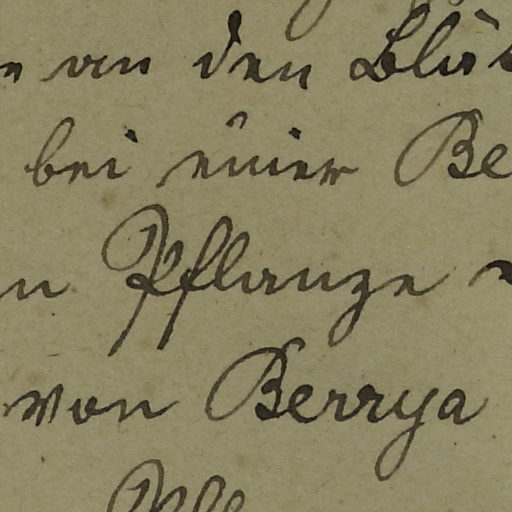 an den Blü
bei einer Be
n Pflanze
von Berrya